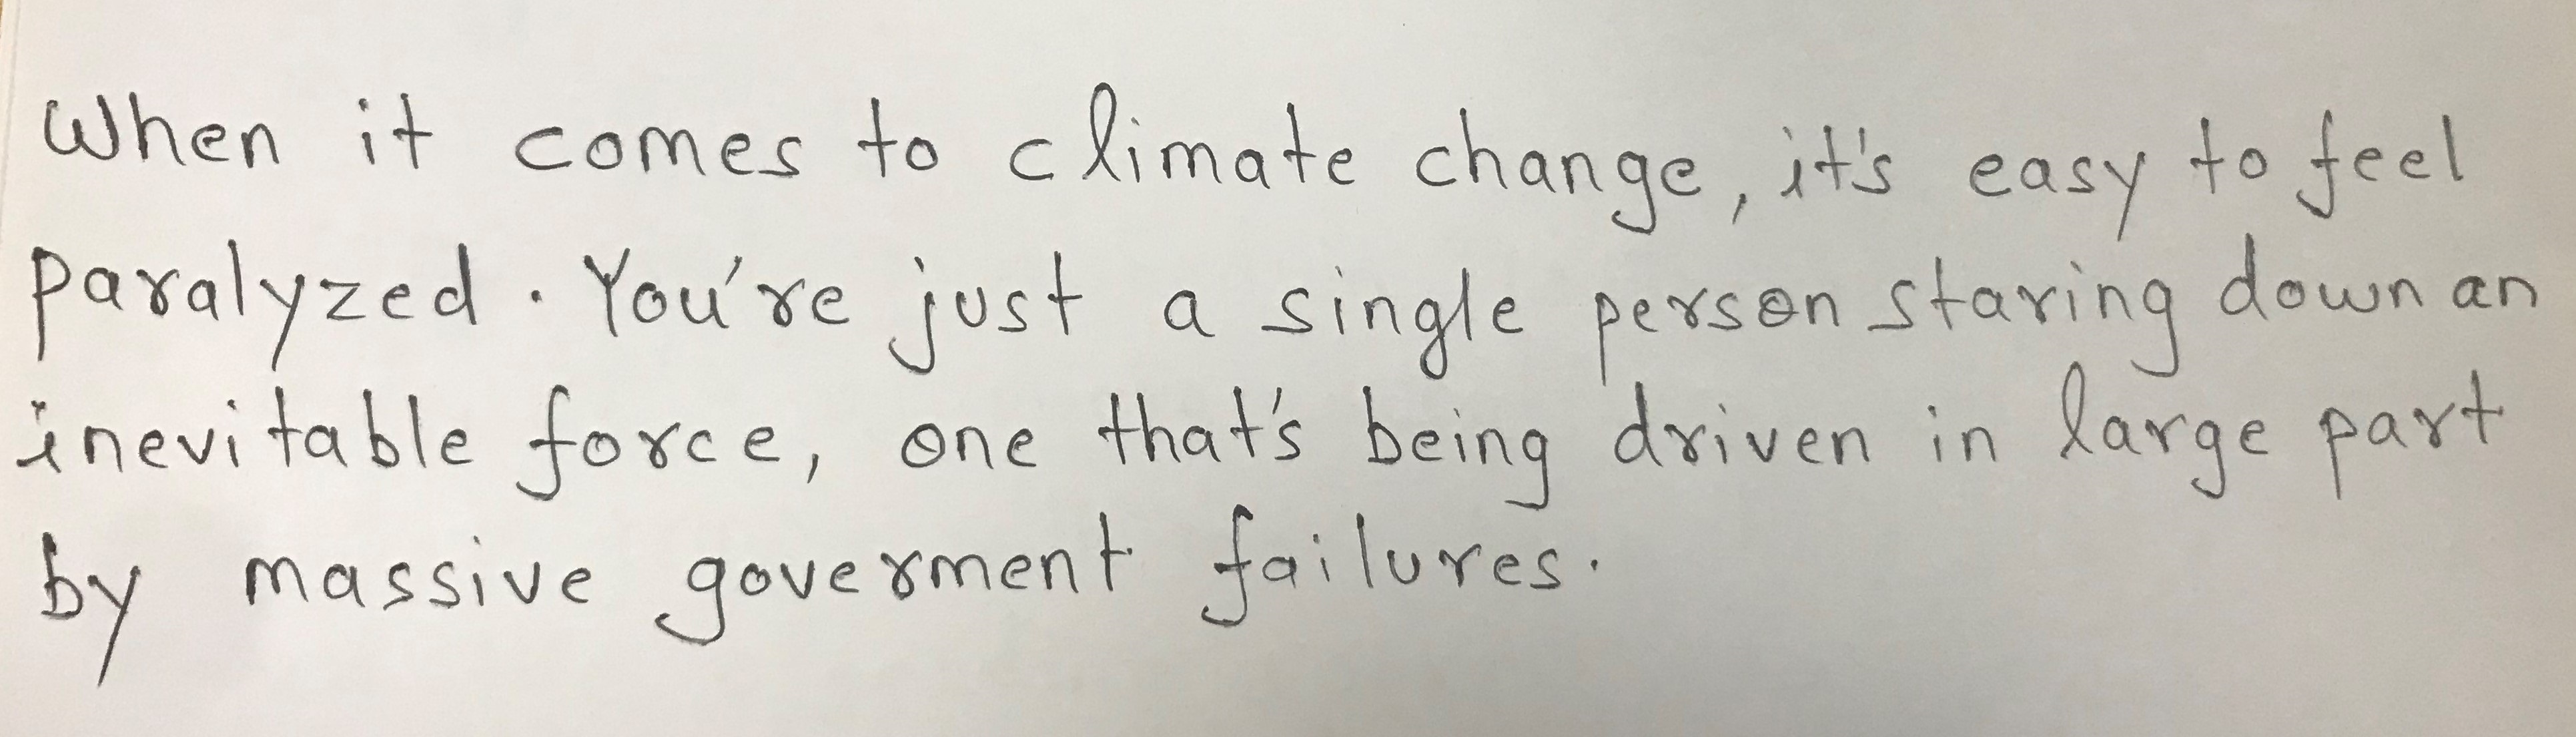 When it comes to climate change, it's easy to feel
paralyzed. You're just a single person staring down an
inevitable force, one that's being driven in large part
by massive goverment failures.